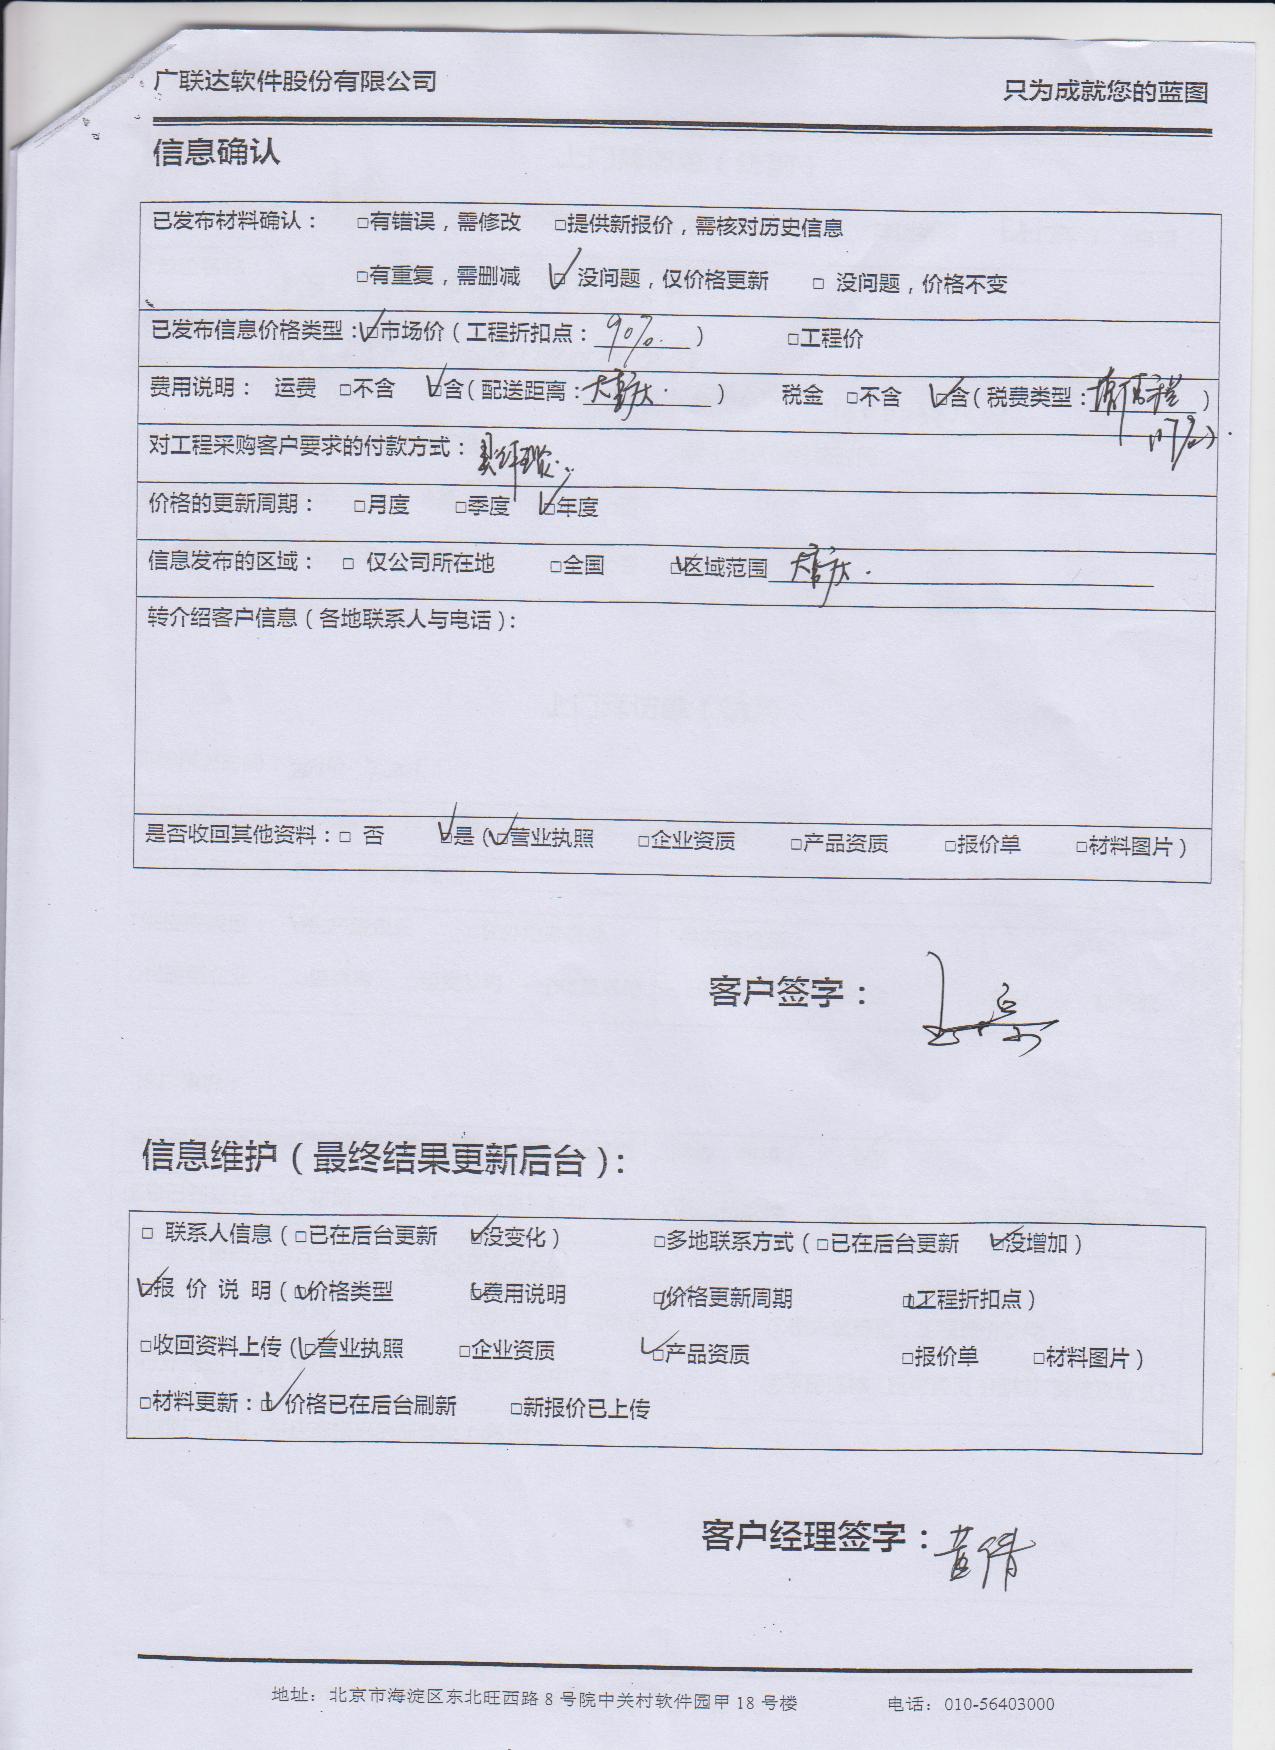 广联达软件股份有限公司 只为成就您的蓝图
信息确认
已发布材料确认： □有错误，需修改 □提供新报价，需核对历史信息
□有重复，需删减 ☑ 没问题，仅价格更新 □ 没问题，价格不变
已发布信息价格类型：☑市场价（工程折扣点：90%） □工程价
费用说明： 运费 □不含 ☑含（配送距离：大重庆） 税金 □不含 ☑含（税费类型：）
对工程采购客户要求的付款方式：
价格的更新周期： □月度 □季度 ☑年度
信息发布的区域： □ 仅公司所在地 □全国 ☑区域范围 大重庆
转介绍客户信息（各地联系人与电话）：
是否收回其他资料：□ 否 ☑是（☑营业执照 □企业资质 □产品资质 □报价单 □材料图片）
客户签字：
信息维护（最终结果更新后台）：
□ 联系人信息（□已在后台更新 ☑没变化） □多地联系方式（□已在后台更新 ☑没增加）
☑报 价 说 明（☑价格类型 ☑费用说明 ☑价格更新周期 ☑工程折扣点）
□收回资料上传（☑营业执照 □企业资质 ☑产品资质 □报价单 □材料图片）
□材料更新：☑ 价格已在后台刷新 □新报价已上传
客户经理签字：黄倩
地址：北京市海淀区东北旺西路 8 号院中关村软件园甲 18 号楼 电话：010-56403000